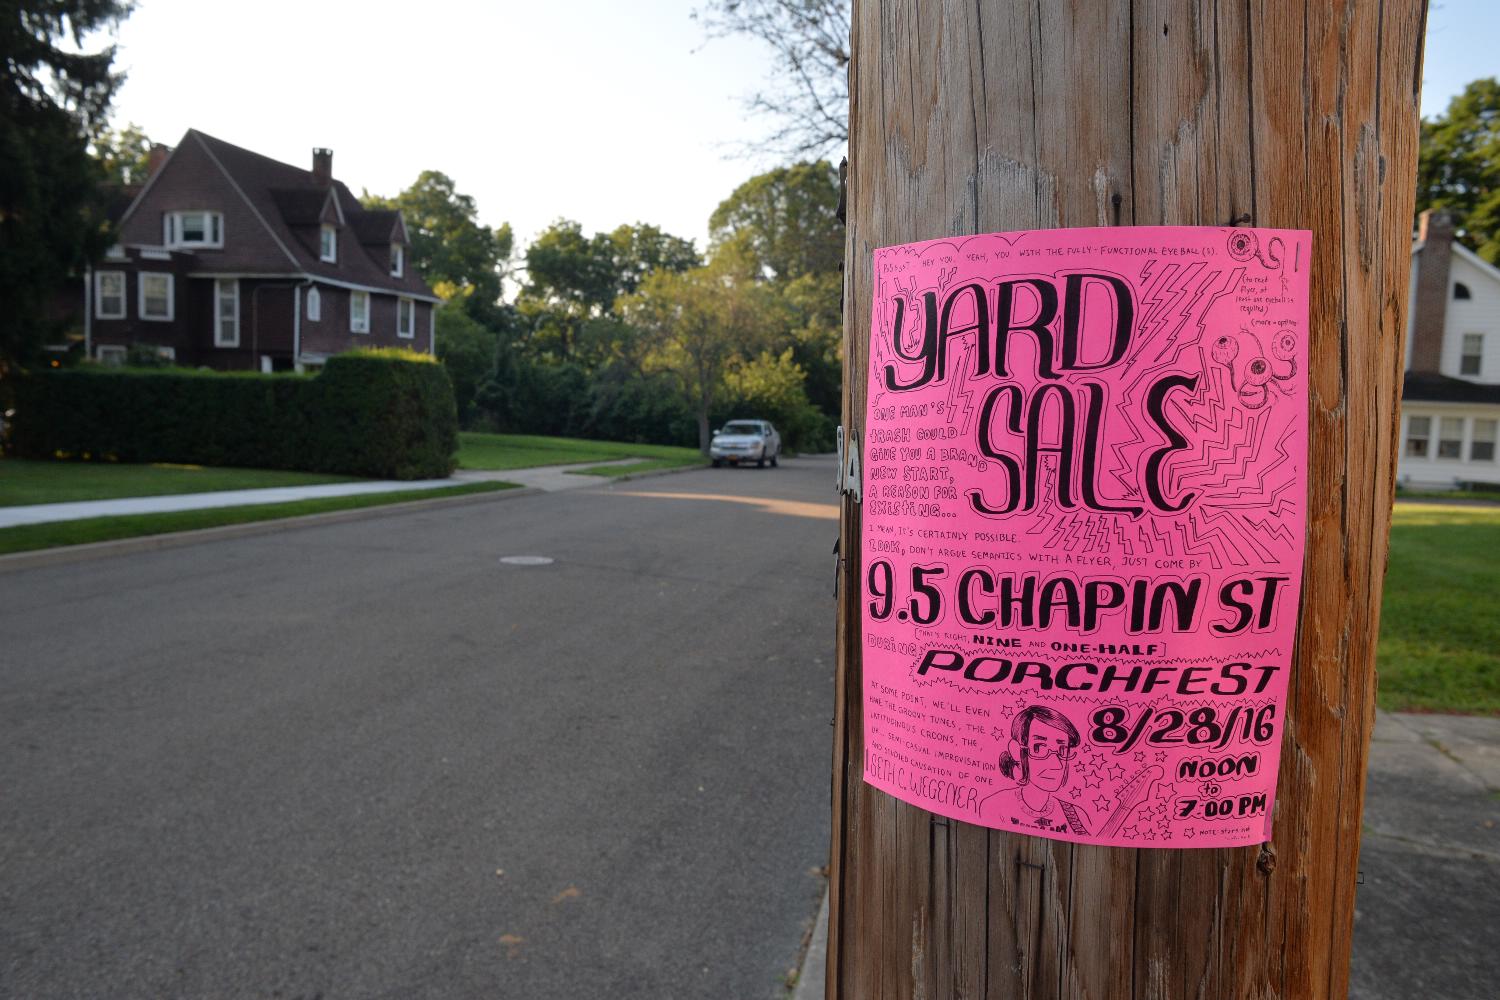 PSSST. HEY YOU. YEAH, YOU, WITH THE FULLY-FUNCTIONAL EYEBALL(S).
(to read
flyer, at
least one eyeball is
required)
(more = optional)
YARD
SALE
ONE MAN'S
TRASH COULD
GIVE YOU A BRAND
NEW START,
A REASON FOR
EXISTING...
I MEAN, IT'S CERTAINLY POSSIBLE.
LOOK, DON'T ARGUE SEMANTICS WITH A FLYER, JUST COME BY
9.5 CHAPIN ST
[THAT'S RIGHT, NINE AND ONE-HALF]
DURING
PORCHFEST
AT SOME POINT, WE'LL EVEN
HAVE THE GROOVY TUNES, THE
LATITUDINOUS CROONS, THE,
UH... SEMI-CASUAL IMPROVISATION
AND STUDIED CAUSATION OF ONE
SETH C. WEGENER
8/28/16
NOON
to
7:00 PM
NOTE: stars not